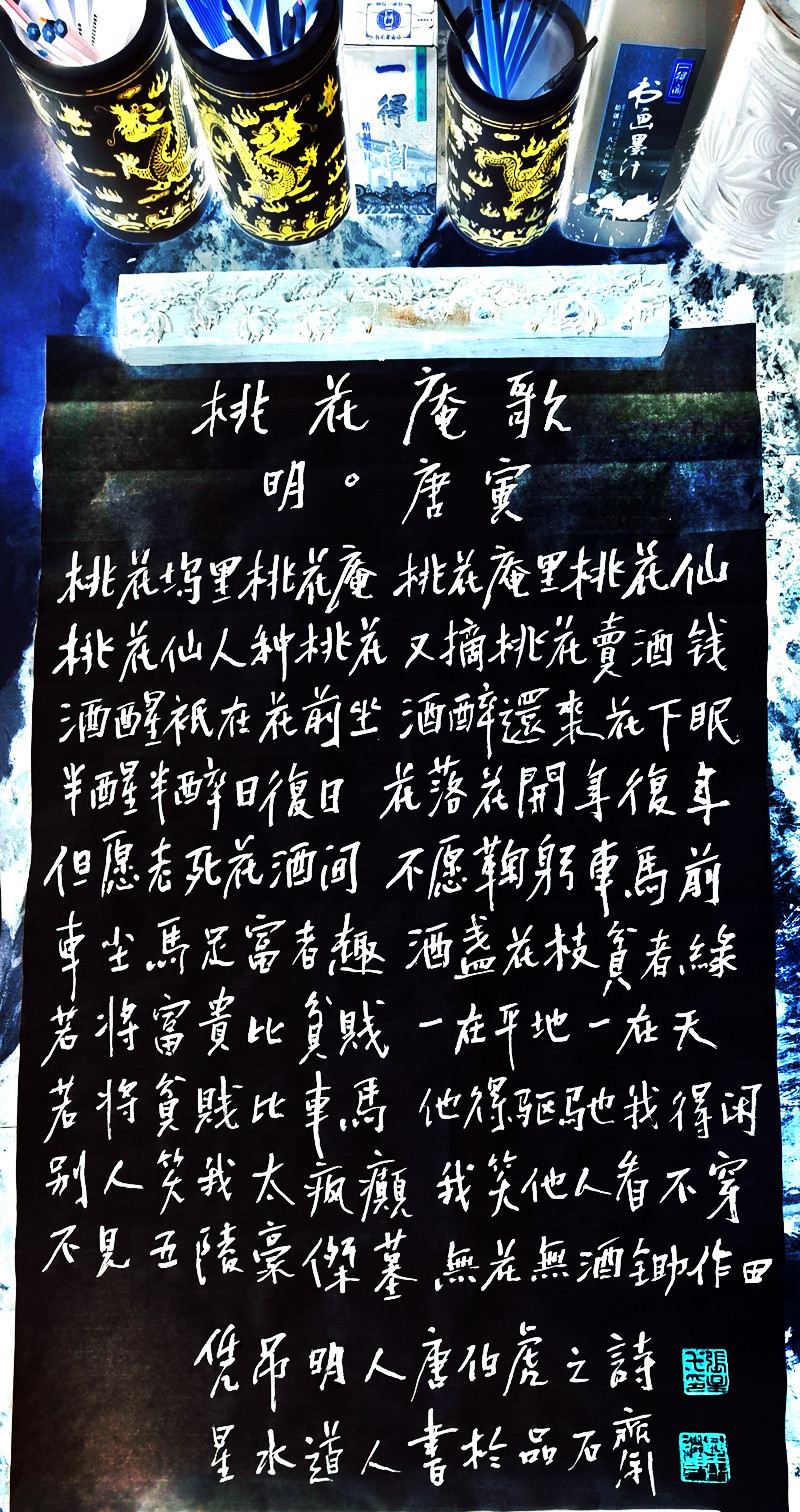 一得阁
精制墨汁
一得阁
书画墨汁
桃花庵歌
明。唐寅
桃花坞里桃花庵 桃花庵里桃花仙
桃花仙人种桃花 又摘桃花賣酒钱
酒醒祇在花前坐 酒醉還來花下眠
半醒半醉日復日 花落花開年復年
但愿老死花酒间 不愿鞠躬車馬前
車尘馬足富者趣 酒盏花枝貧者緣
若将富貴比貧賤 一在平地一在天
若将貧賤比車馬 他得驱馳我得闲
别人笑我太疯癲 我笑他人看不穿
不見五陵豪傑墓 無花無酒鋤作田
吊明人唐伯虎之詩
星水道人書於品石齋